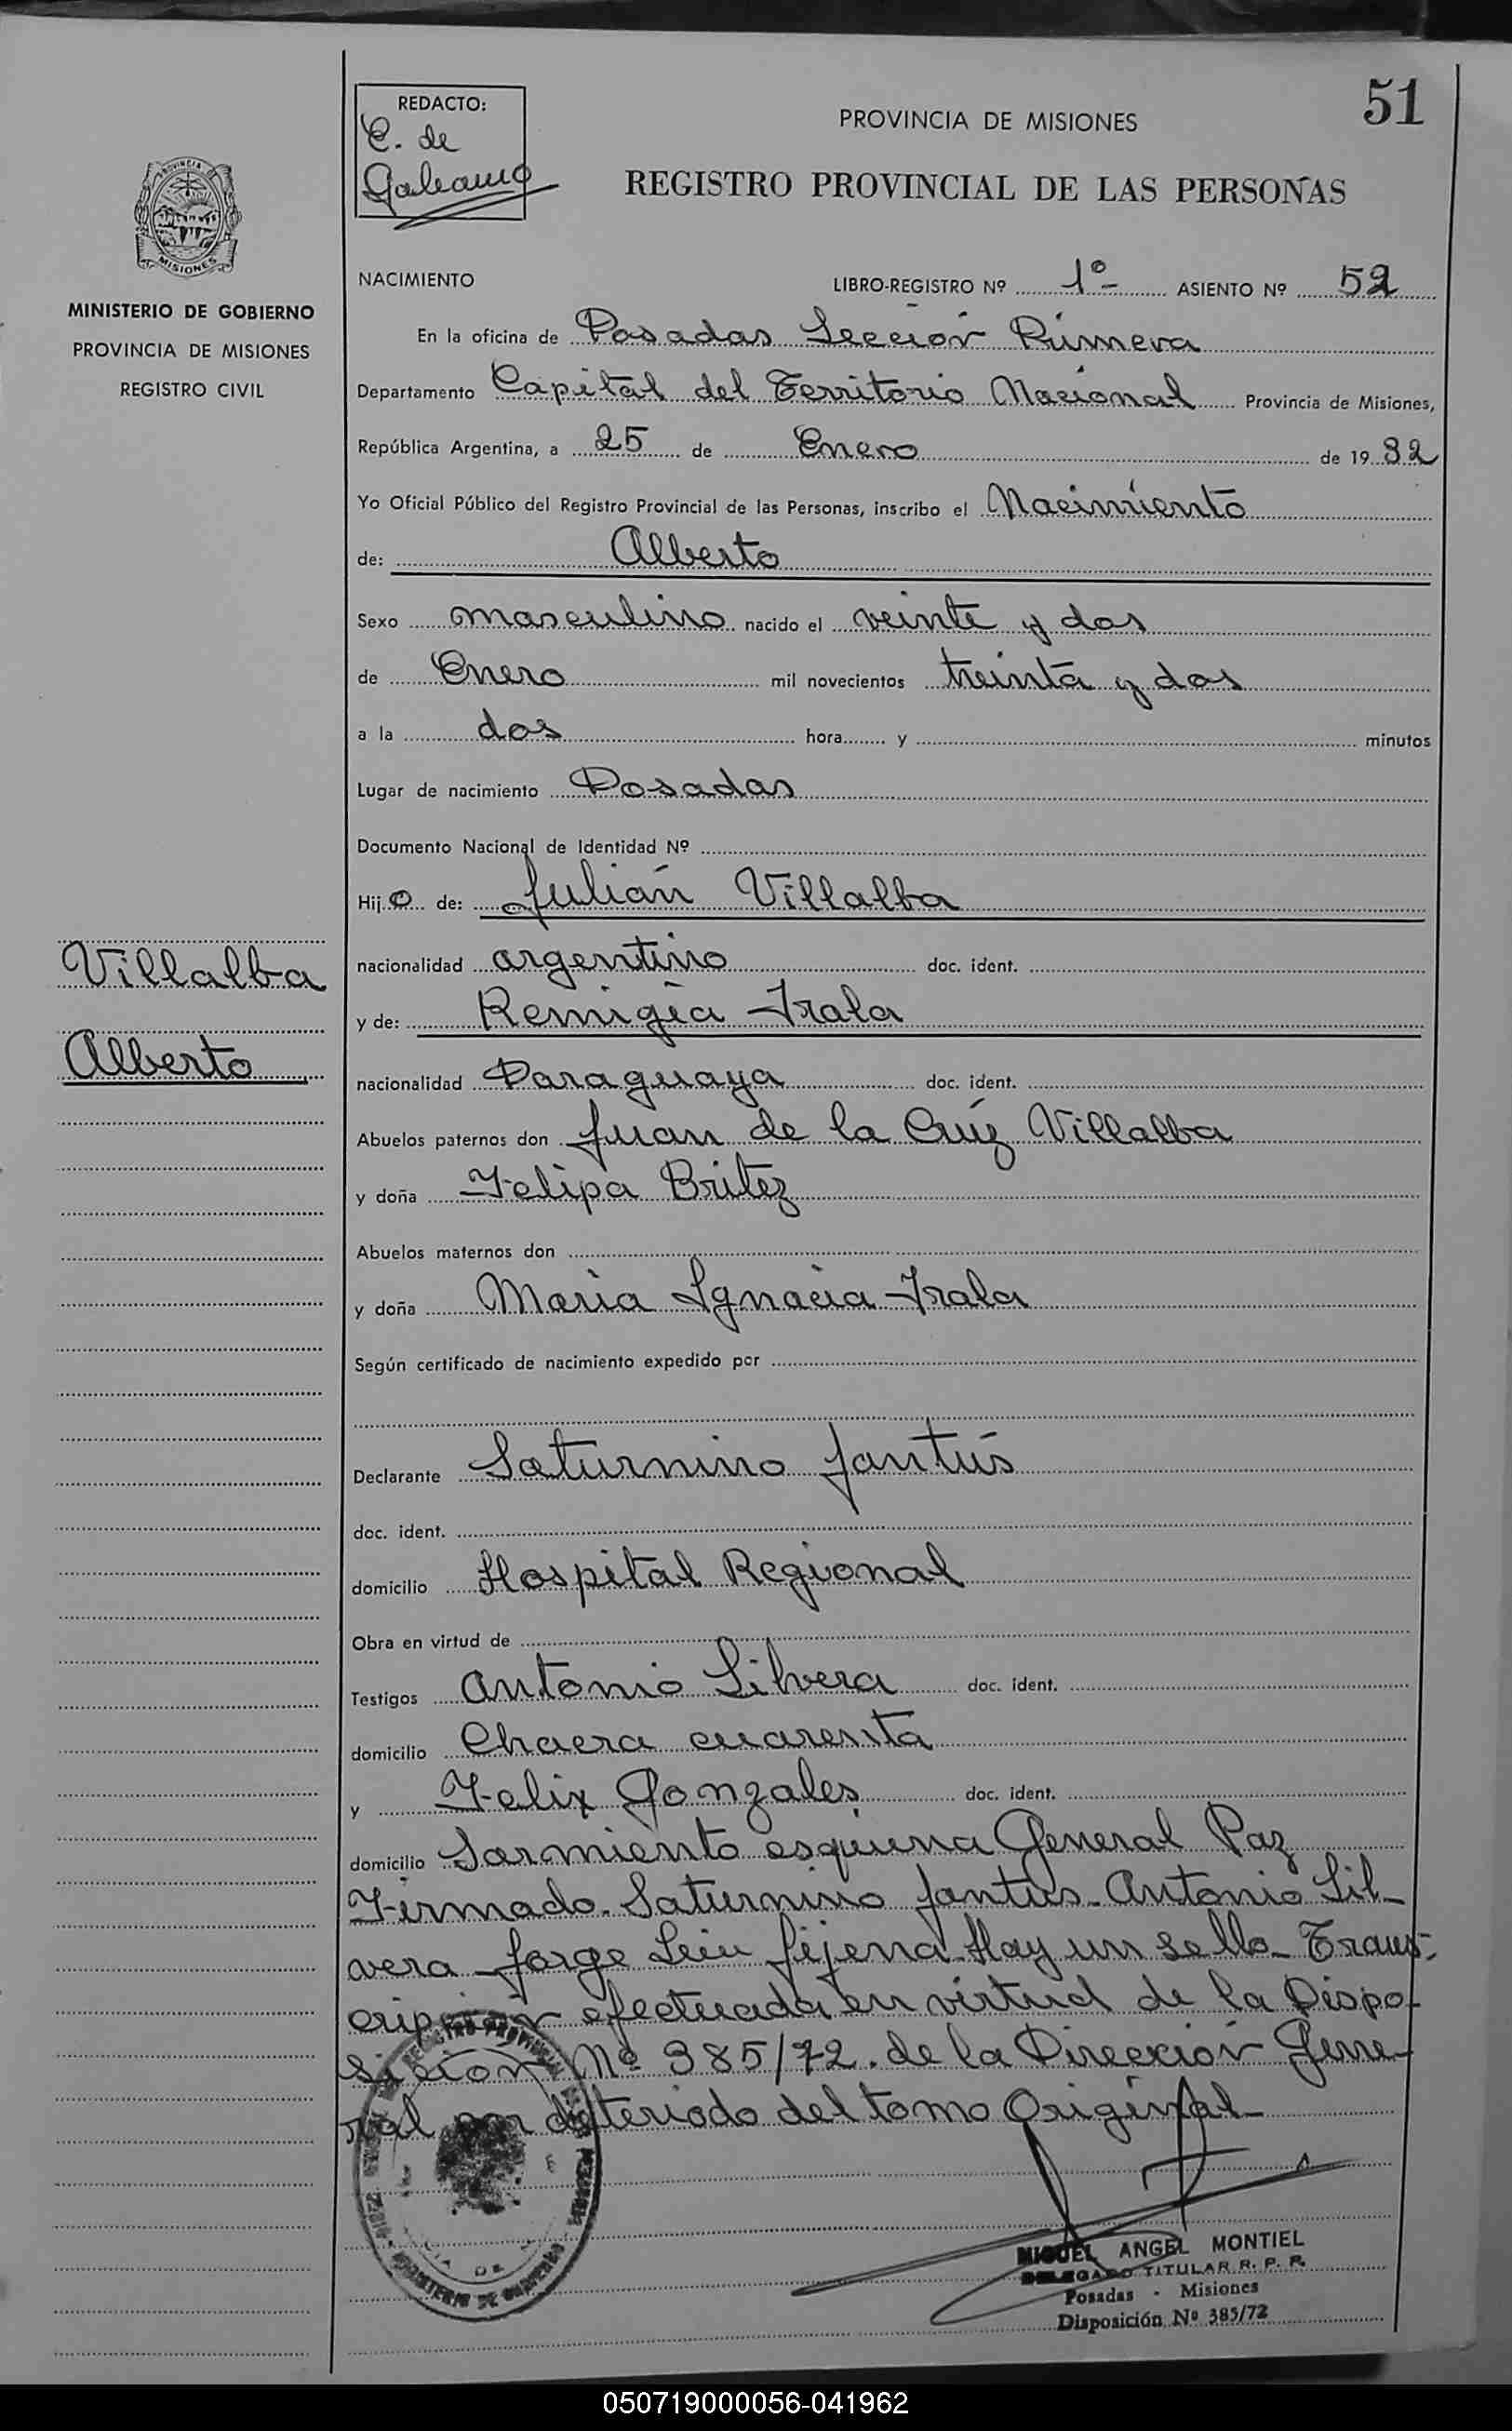 51
REDACTO:
C. de
Galeano
PROVINCIA DE MISIONES
REGISTRO PROVINCIAL DE LAS PERSONAS
PROVINCIA
MISIONES
MINISTERIO DE GOBIERNO
PROVINCIA DE MISIONES
REGISTRO CIVIL
NACIMIENTO LIBRO-REGISTRO Nº 1º- ASIENTO Nº 52
En la oficina de Posadas Sección Primera
Departamento Capital del Territorio Nacional Provincia de Misiones,
República Argentina, a 25 de Enero de 1932
Yo Oficial Público del Registro Provincial de las Personas, inscribo el Nacimiento
de: Alberto
Sexo masculino nacido el veinte y dos
de Enero mil novecientos treinta y dos
a la dos hora y minutos
Lugar de nacimiento Posadas
Documento Nacional de Identidad Nº
Hijo de: Julián Villalba
nacionalidad argentino doc. ident.
y de: Remigia Irala
nacionalidad Paraguaya doc. ident.
Abuelos paternos don Juan de la Cruz Villalba
y doña Felipa Britez
Abuelos maternos don
y doña Maria Ignacia Irala
Según certificado de nacimiento expedido por
Declarante Saturnino Jantús
doc. ident.
domicilio Hospital Regional
Obra en virtud de
Testigos Antonio Silvera doc. ident.
domicilio Chacra cuarenta
y Felix Gonzales doc. ident.
domicilio Sarmiento esquina General Paz
Firmado. Saturnino Jantus. Antonio Sil-
vera Jorge Fijena. Hay un sello. Trans-
cripción efectuada en virtud de la Dispo-
sición Nº 385/72. de la Dirección Gene-
ral por deteriodo del tomo Original
Villalba
Alberto
MIGUEL ANGEL MONTIEL
DELEGADO TITULAR R. P. P.
Posadas - Misiones
Disposición Nº 385/72
050719000056-041962